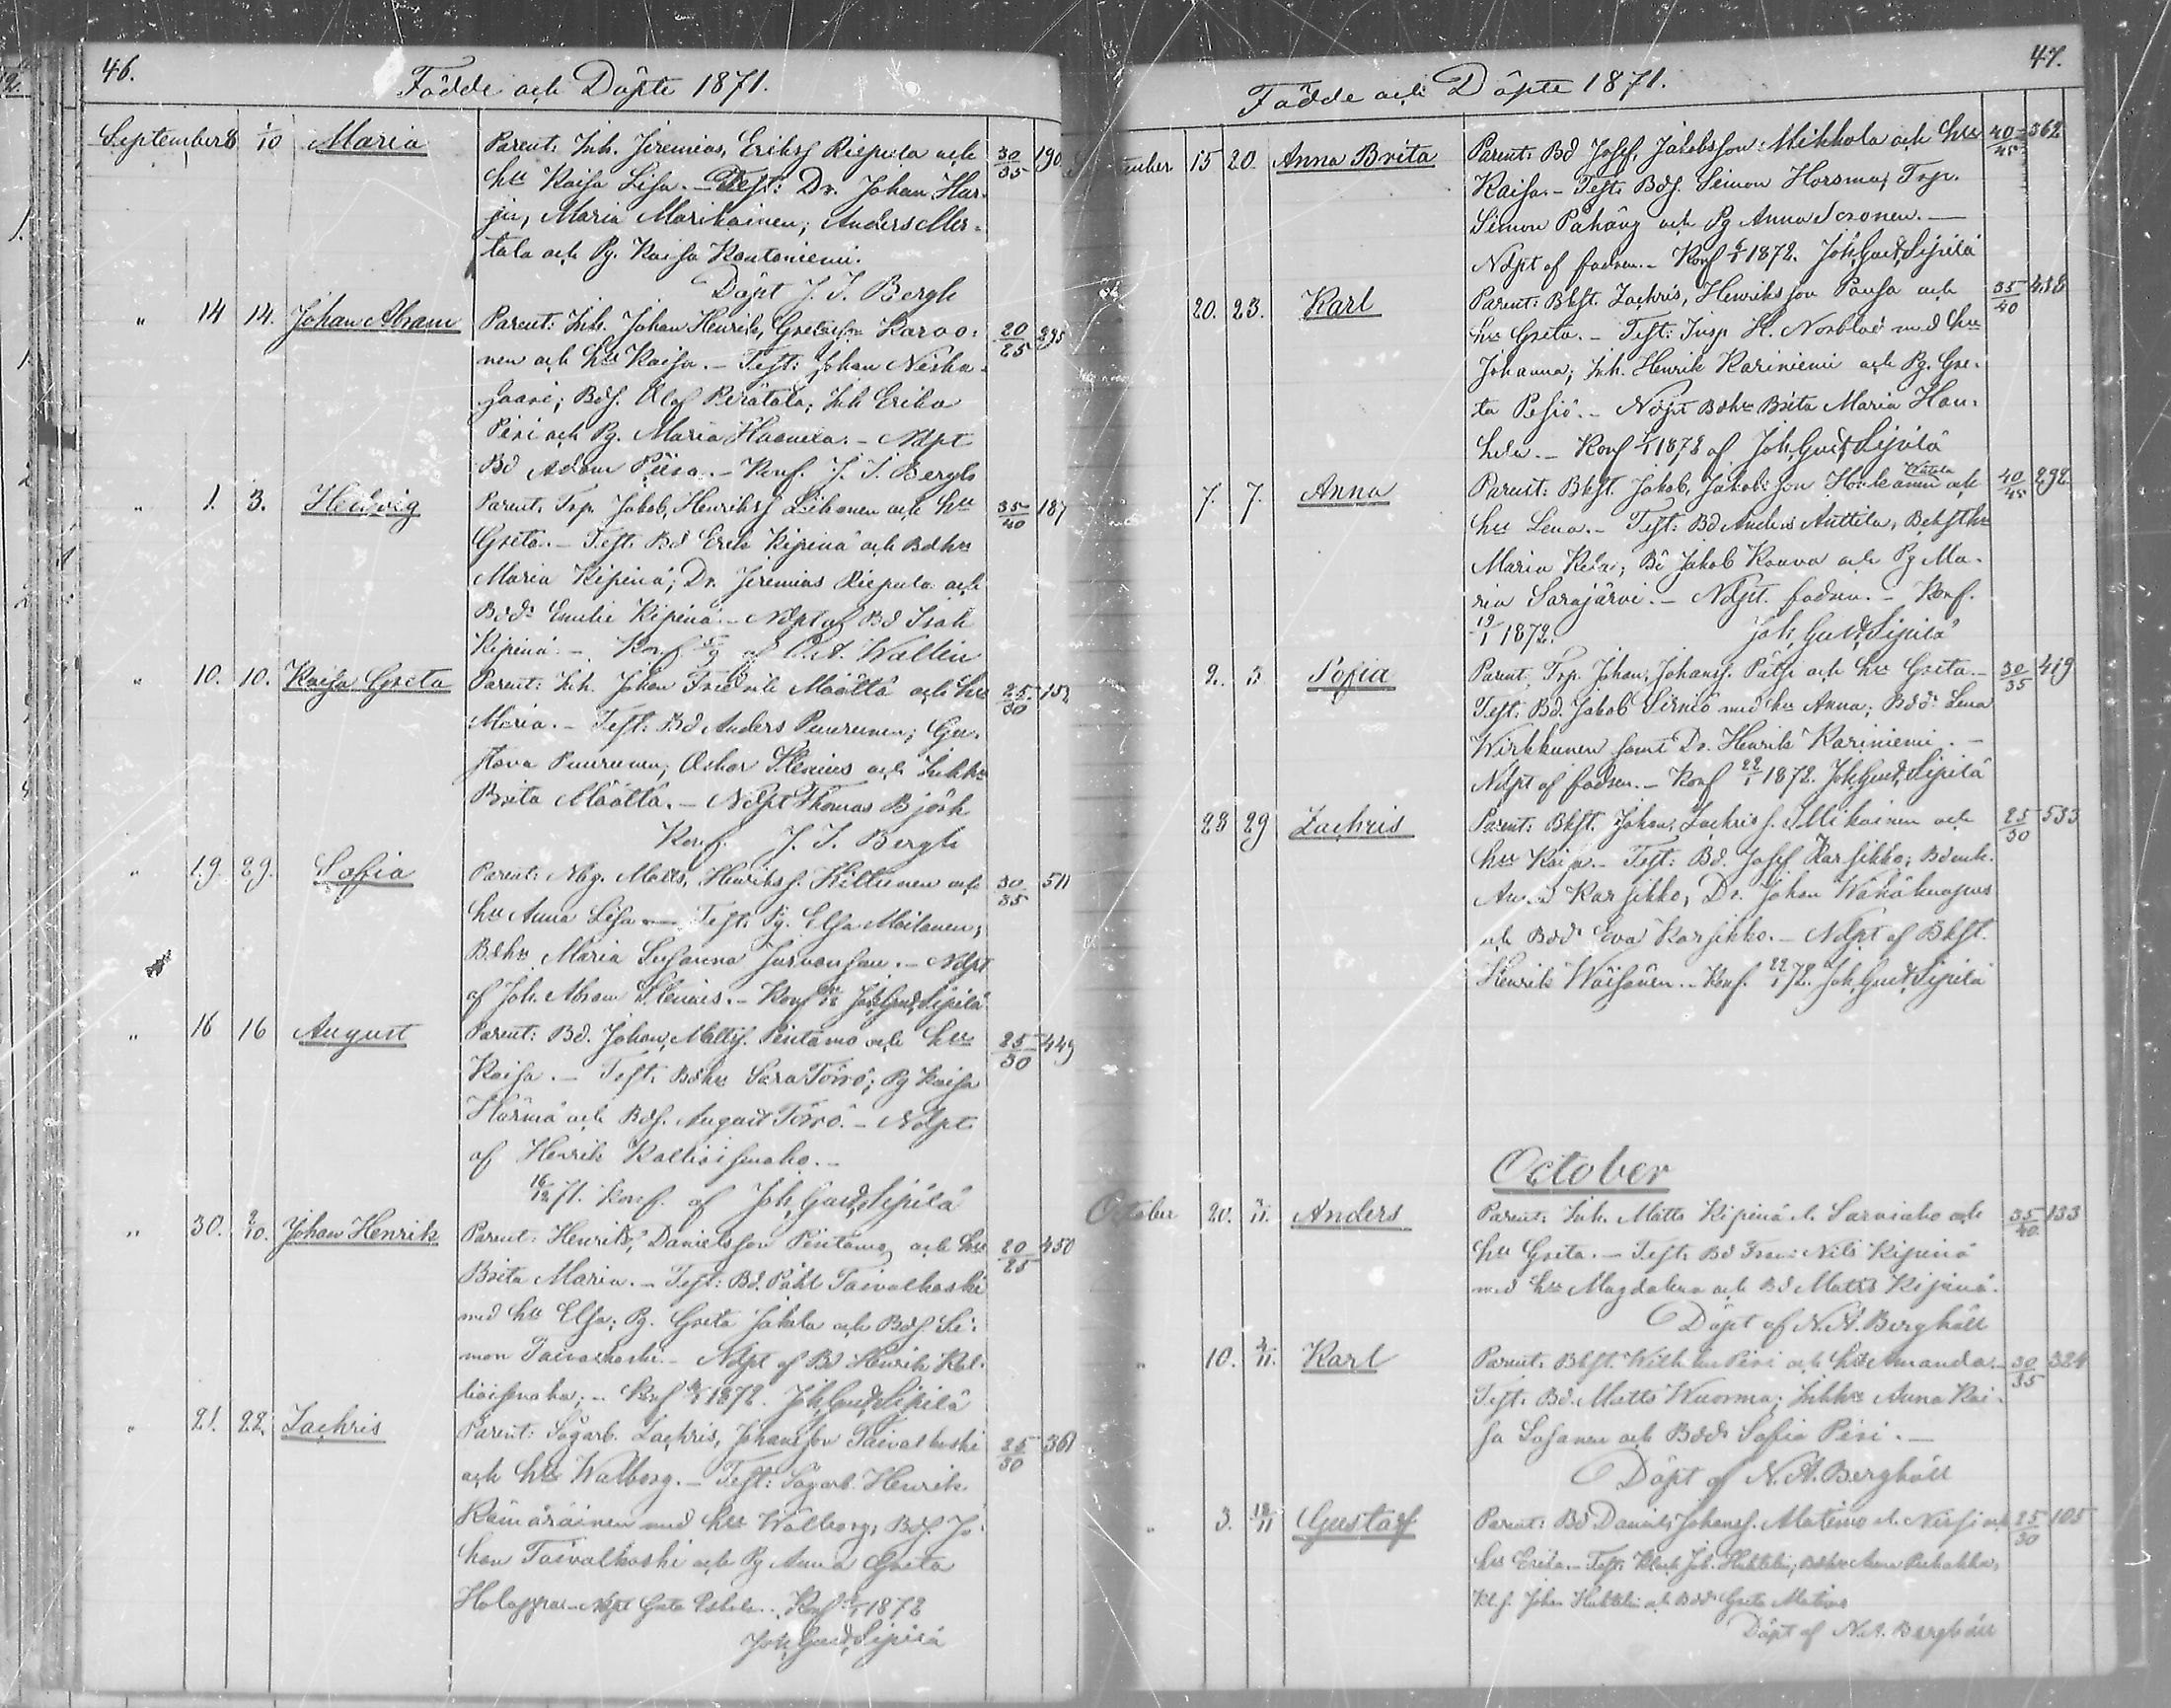 46.
Födde och Döpte 1871.
September 8 1/10 Maria Parent: Inh. Jeremias, Eriksf Riepula och 30/35 190
hu Kaisa Lisa. — Test: Dr. Johan Har-
ju, Maria Marikainen; Anders Mer-
tala och Pg. Kaisa Kantoniemi.
Döpt J. I. Bergh
" 14 14. Johan Abram Parent: Inh. Johan Henrik, Gretasson Karvo- 20/25 295
nen och hu Kaisa. — Test: Johan Niska-
jaari; Bdf. Olof Perätalo; Inh Erika
Piri och Pg. Maria Haanela. — Ndpt
Bd Adam Piisa. — Konf. J. I. Bergh
" 1. 3. Hedvig Parent. Trp. Jakob, Henriksf Likanen och hu 35/40 187
Greta. — Test. Bd Erik Kipinä och Bdhu
Maria Kipinä; Dr. Jeremias Riepula och
Bdd. Emilie Kipinä. — Ndpt af Bd Isak
Kipinä. — Konf. 5/9 af O. A. Wallin
" 10. 10. Kaisa Greta Parent: Inh. Johan Fredrik Määttä och hu 25/30 152
Maria. — Test: Bd Anders Puurunen; Gu-
stava Puurunen; Oskar Stenius och Inhhu
Brita Määttä. — Ndpt Thomas Björk
Konf. J. I. Bergh
" 19. 29. Sofia Parent: Nbg. Matts, Henriksf. Kiltunen och 30/35 511
hu Anna Lisa — Test. Pg. Elsa Moilanen;
Bdhu Maria Susanna — Ndpt
af Joh. Abram Stenius. — Konf Joh. Gust. Sipilä
" 16 16 August Parent: Bd. Johan, Mattsf. Pintamo och hu 25/30 449
Kaisa. — Test. Bdhu Sara Törrö; Pg Kaisa
Härmä och Bdf. August Törrö. — Ndpt
af Henrik Kallioisenaho. —
16/12 71. Konf. af Joh. Gust. Sipilä
" 30. 2/10. Johan Henrik Parent: Henrik, Danielsson Pintamo och hu 20/25 450
Brita Maria. — Test: Bd. Påhl Taivalkoski
med hu Elsa; Pg. Greta Jäkälä och Bdf. Si-
mon Taivalkoski. — Ndpt af Bd Henrik Kal-
lioisenaho; — Konf 1872. Joh. Gust. Sipilä
" 21. 22. Zachris Parent: Sågarb. Zachris, Johansson Taivalkoski 25/30 361
och hu Walborg. — Test: Sågarb. Henrik
Kämäräinen med hu Walborg; Bdf. Jo-
han Taivalkoski och Pg Anna Greta
Holappa — Ndpt Greta . Konf 1872
Joh. Gust. Sipilä
47.
Födde och Döpte 1871.
15 20. Anna Brita Parent: Bd Josef, Jakobsson Mikkola och hu 40/45 362
Kaisa. — Test. Bdf. Simon Horsma; Trp.
Simon Påhäng och Pg Anna Seronen. —
Ndpt af fadren. — Konf 1872. Joh. Gust. Sipilä
20. 23. Karl Parent: Bkft. Zachris, Henriksson Pausa och 35/40 418
hu Greta. — Test: Insp. H. Norblad med hu
Johanna; Inh. Henrik Kariniemi och Pg. Gre-
ta Pesiö. — Ndpt Bdhu Brita Maria Hau-
hela. — Konf 1872 af Joh. Gust. Sipilä
7. 7. Anna Parent: Bkft. Jakob, Jakobsson och 40/45 292
hu Lena. — Test: Bd Anders Anttila, Bekfthu
Maria Kela; Bd Jakob Kouva och Pg Ma-
ria Sarajärvi. — Ndpt. fadren. — Konf.
19/1 1872. Joh. Gust. Sipilä
2. 3 Sofia Parent, Trp. Johan, Johansf. Pätsi och hu Greta. — 30/35 419
Test: Bd. Jakob Sirniö med hu Anna; Bdd. Lena
Wirkkunen samt Dr. Henrik Kariniemi. —
Ndpt af fadren. — Konf 22/1 1872. Joh. Gust. Sipilä
28 29 Zachris Parent: Bkft. Johan, Zachrisf. Mikainen och 25/30 533
hu Kaisa. — Test: Bd. Josef Karsikko; Bdenk.
Anna Karsikko, Dr. Johan Wähäkuopus
och Bdd. Eva Karsikko. — Ndpt af Bkft.
Henrik Wäisänen. — Konf. 22/1 72. Joh. Gust. Sipilä
October
October 20. 3/11. Anders Parent: Inh. Matts Kipinä l. Sarviaho och 35/40 133
hu Greta. — Test. Bd Frans Nils Kipinä
med hu Magdalena och Bd Matts Kipinä.
Döpt af N. A. Berghäll
" 10. 4/11. Karl Parent. Bkft. Wilhelm Piri och hu Amanda. — 30/35 324
Test. Bd. Matts Wuorma; Inhhu Anna Kai-
sa Sosanen och Bdd. Sofia Piri. —
Döpt af N. A. Berghäll
" 3. 12/11 Gustaf Parent: Bd Daniel, Johansf. Matimo l. Nissi och 25/30 105
hu Erika. — Test. Joh. Huttelin; Bdhu Anna
Johan Huttelin och Bdd. Greta Matimo
Döpt af N. A. Berghäll